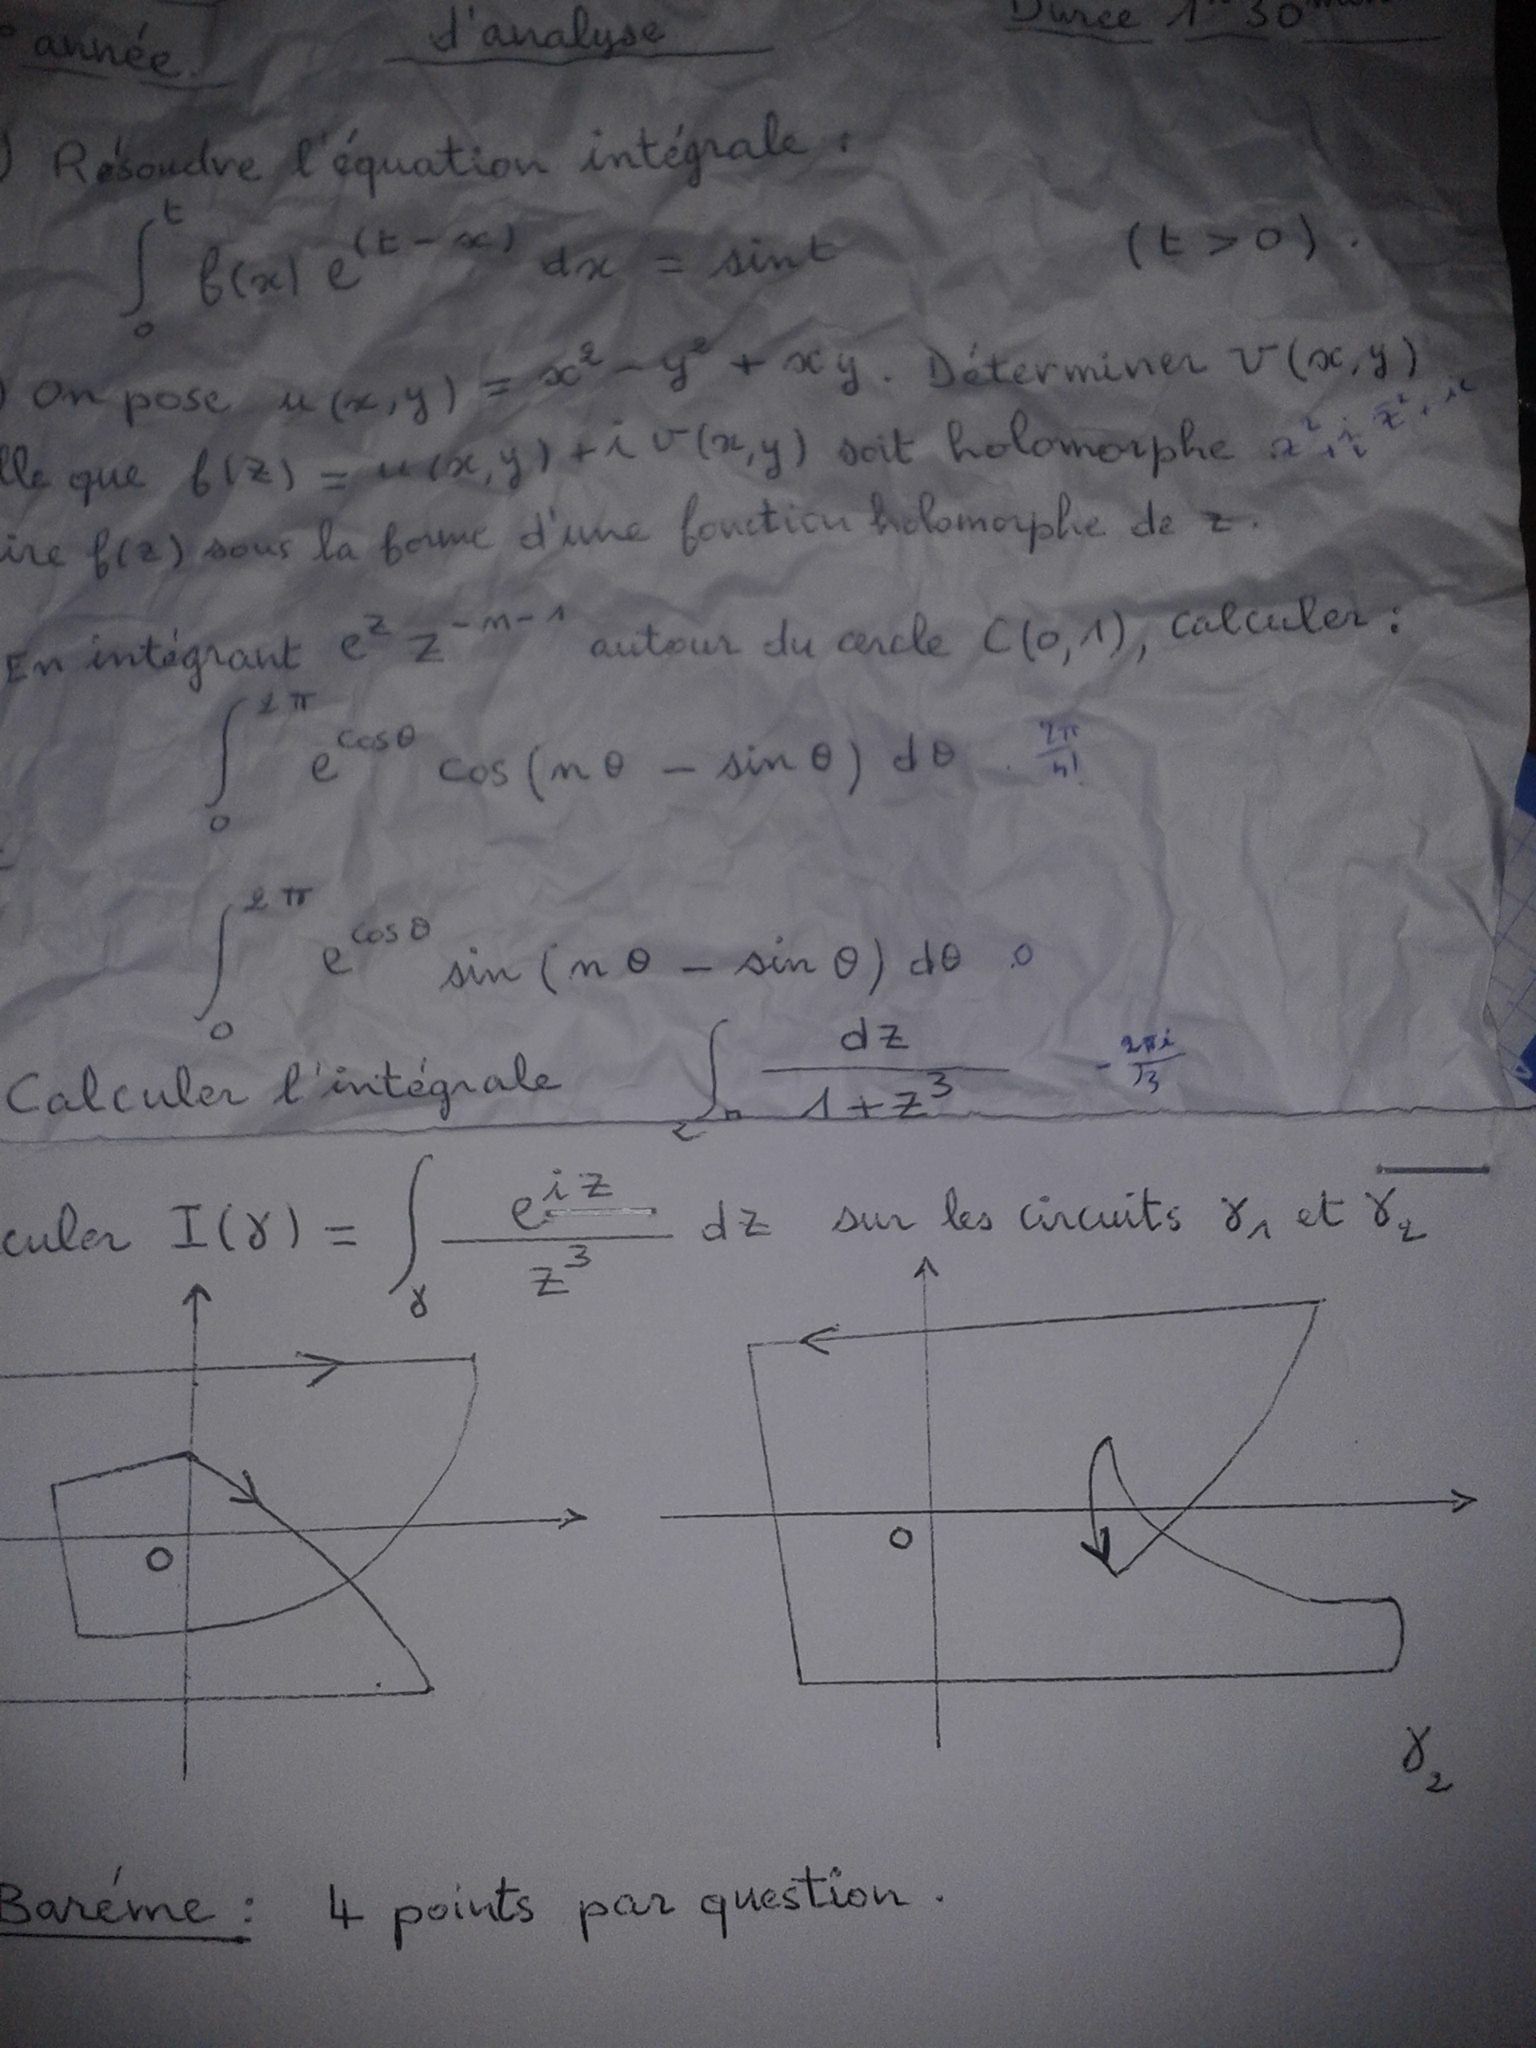 année. d'analyse Durée 1h 30 min
) Résoudre l'équation intégrale :
∫₀ᵗ f(x) e^(t-x) dx = sin t (t > 0).
) On pose u(x,y) = x² - y² + xy. Déterminer v(x,y)
lle que f(z) = u(x,y) + i v(x,y) soit holomorphe
ire f(z) sous la forme d'une fonction holomorphe de z.
En intégrant e^z z^(-n-1) autour du cercle C(0,1), calculer :
∫₀^2π e^cosθ cos(nθ - sinθ) dθ . 2π/n!
∫₀^2π e^cosθ sin(nθ - sinθ) dθ .0
Calculer l'intégrale ∫ dz/(1+z³) - 2πi/√3
culer I(γ) = ∫_γ e^iz/z³ dz sur les circuits γ₁ et γ₂
O
O
γ₂
Baréme : 4 points par question.